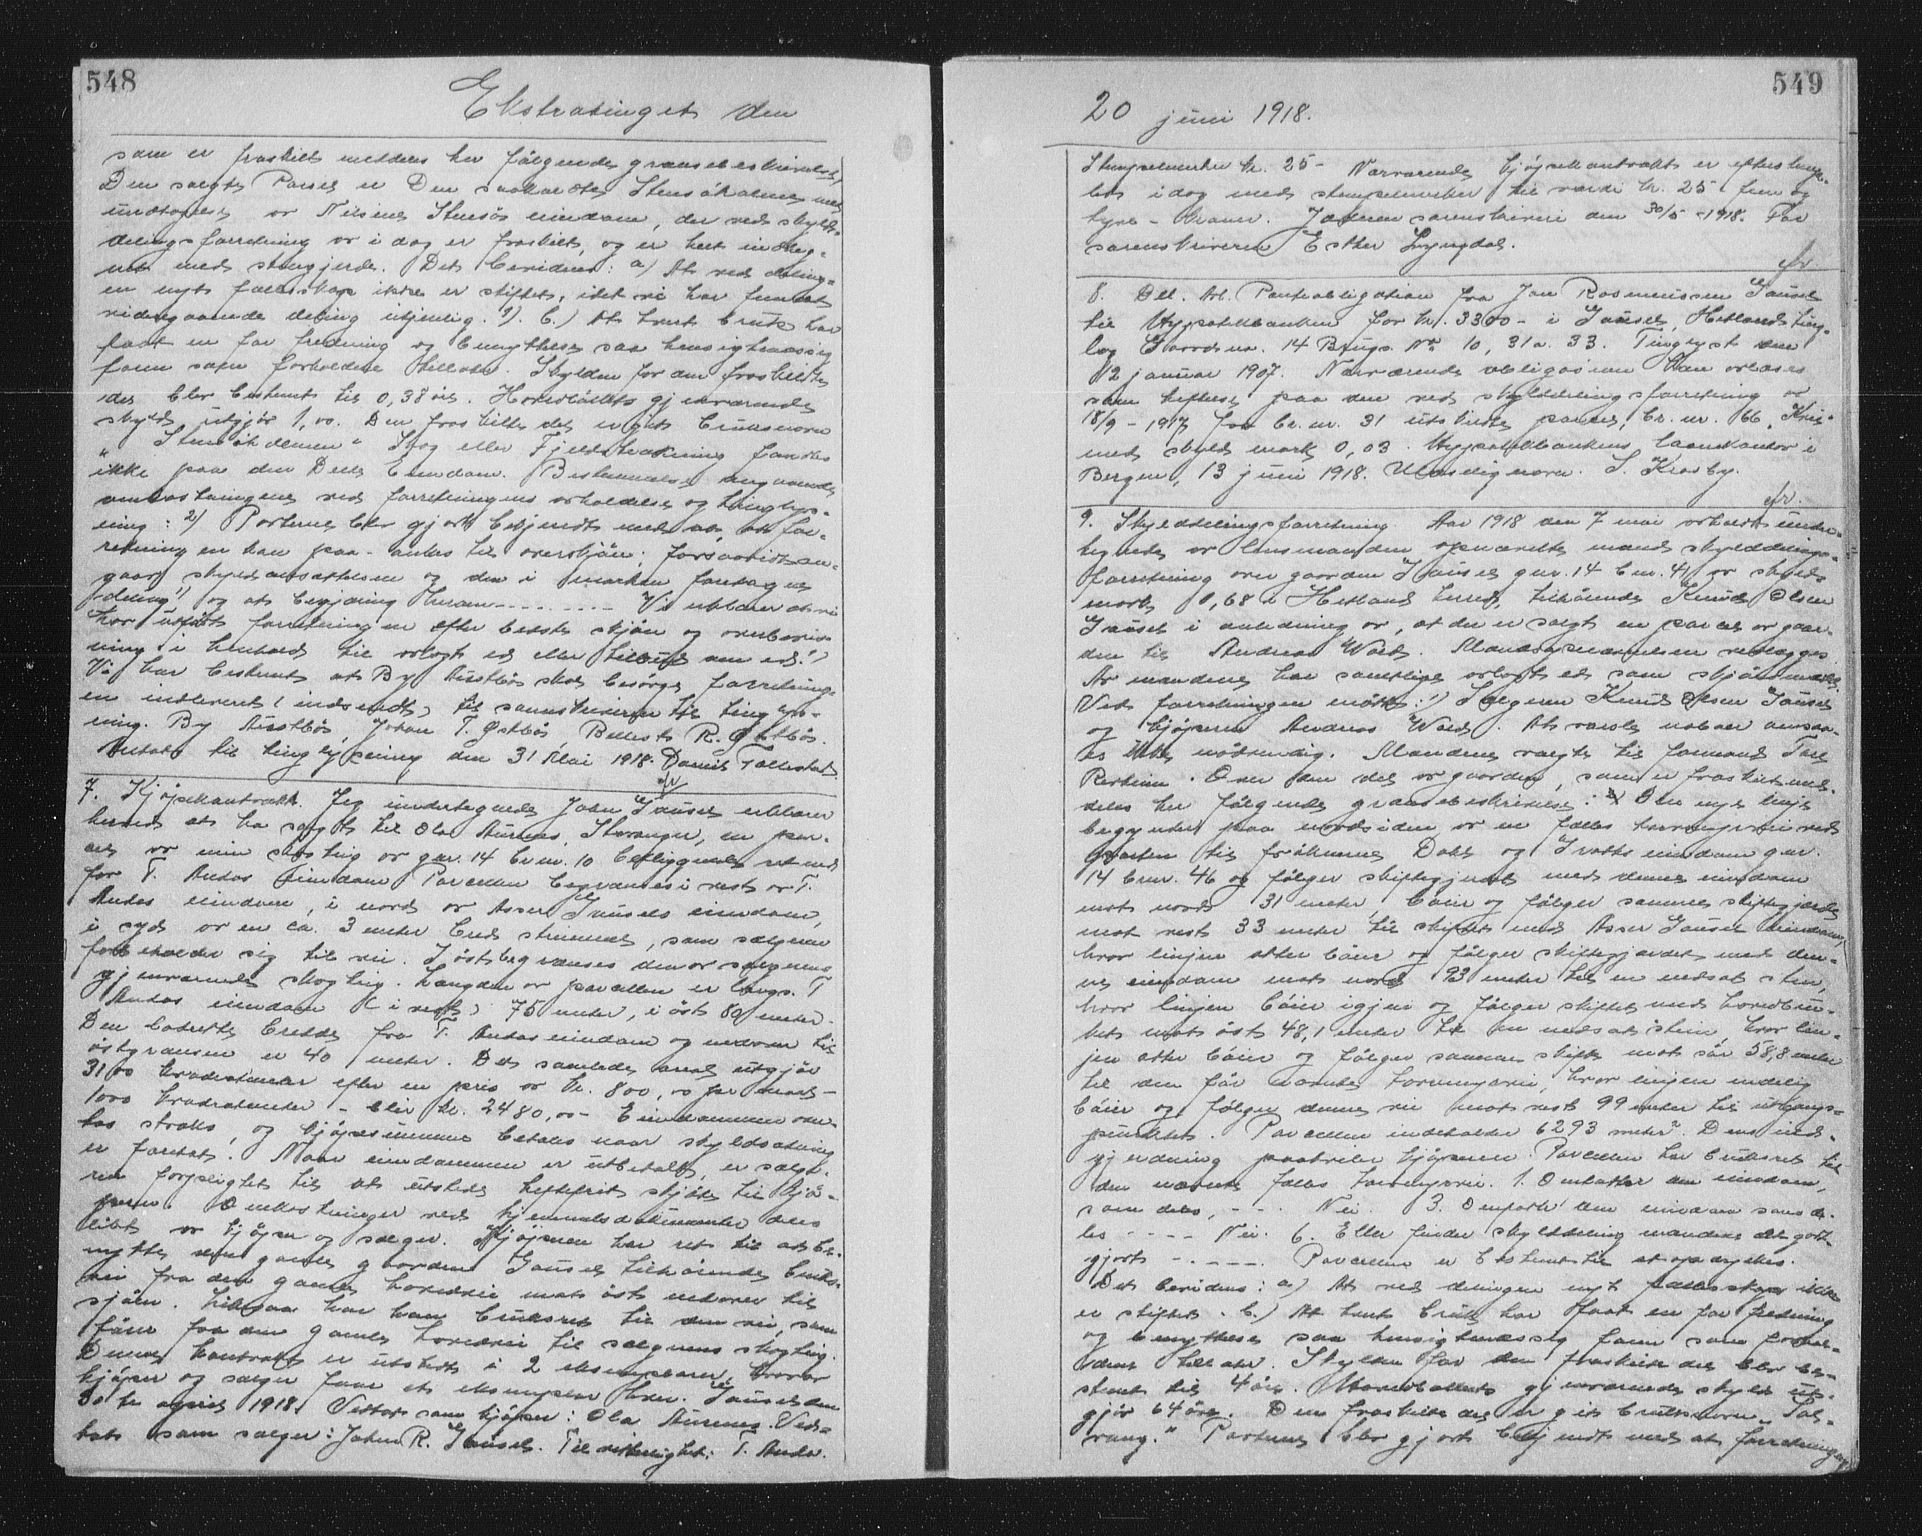 548
Ekstratinget den
som er fraskilt meddeles her følgende grænsebeskrivelse,
Den solgte Parsel er Den saakaldte Stensåkeren med
undtagelse av Nilsines Stensøs eiendom, der ved skyld-
delingsforretning av i dag er fraskilt, og er helt indheg-
net med stengjerde. Det bevidnes: a) At ved deling-
en nyt fællesskap ikke er stiftet, idet vi har fundet
videregaaende deling utjenlig. 1). b.) At hvert bruk har
faat en for fredning og benyttelse saa hensigtmæssig
form som forholdene tillater. Skylden for den fraskilte
del blev bestemt til 0,38 øre. Hovedbølets gjenværende
skyld utgjør 1,00. Den fraskilte del er git bruksnavn
"Stensåkeren" Skog eller Fjeldstrækning fandtes
ikke paa den Delte Eiendom. Bestemmelse angaaende
omkostningene ved forretningens avholdelse og tinglys-
ning: 2) Parterne blev gjort bekjendt med at, at for-
retningen kan paa-ankes til overskjön; forsaavidt an-
gaar skyldansættelsen og den i marken foretagne
deling 1) og at begjæring herom - - - - - - - - Vi erklærer at vi
har utført forretningen efter bedste skjön og overbevis-
ning i henhold til avlagt ed eller tilbud om ed. 1)
Vi har bestemt at By Austbø skal besørge forretning-
en indleveret (indsendt) til sorenskriveren til tinglys-
ning. By Austbø, Johan T. Østbø, Rellest R. Østbø.
Mottat til tinglysning den 31 Mai 1918. Daniel Tallestad.
7. Kjøpekontrakt. Jeg undertegnede John Gausel erklærer
herved at ha solgt til Ola Aurenes, Stavanger, en par-
cel av min skogteig av gnr. 14 brnr. 10 beliggende ret ned
for T. Andas eiendom. Parcellen begrænses i vest av T.
Andas eiendom, i nord av Asser Gausels eiendom,
i syd av en ca. 3 meter bred strimmel, som sælgeren
forbeholder sig til vei. I öst begrænses den av sælgerens
gjenværende skogteig. Længden av parcellen er langs T.
Andas eiendom (i vest) 75 meter, i öst 80 meter.
Den bedrekte bredde fra T. Andas eiendom og nedover til
östgrænsen er 40 meter. Det samlede areal utgjör
3100 kvadratmeter efter en pris av kr. 800,00 per maal -
1000 kvadratmeter - blir kr. 2480,00 - Eiendommen over-
tas straks, og kjöpesummen betales naar skyldsætning
er foretat. Naar eiendommen er utbetalt, er sælge-
ren forpligtet til at utstede heftefrit skjöte til kjö-
peren. Omkostninger ved hjemmelsdokumenter deles
likt av kjöper og sælger. Kjöperen har ret til at be-
nytte den gamle gaarden Gausel tilhörende bruks-
vei fra den gamle hovedvei mot öst nedover til
sjöen. Likesaa har han bruksret til den vei, som
förer fra den gamle hovedvei til sælgerens skogteig.
Denne kontrakt er utstedt i 2 eksemplarer, hvorav
kjöper og sælger faar et eksemplar hver. Gausel den
30 te april 1918. Vedtat som kjöper: Ola Aurenes. Ved-
tat som sælger: John R. Gausel. Til vitterlighet: T. Anda.
549
20 juni 1918.
Stempelmerker kr. 25- Nærværende kjöpekontrakt er efterstemp-
let idag med stempelmerker til værdi kr. 25 - fem og
tyve - kroner. Jæderen sorenskriveri den 30/5 - 1918. For
sorenskriveren Esther Lyngdal.
8. Del. Avl. Panteobligation fra Jon Rasmussen Gausel
til Hypotekbanken for kr. 3300- i Gausel, Hetlands ting-
lag Gaardsnr. 14 Brugs. No 10, 31 a. 33. Tinglyst den
12 januar 1907. Nærværende obligasion kan avlæses
som heftelse paa den ved skylddelingsforretning av
18/9 - 1917 fra br. nr. 31 utskilte parcel, br. nr. 66
med skyld mark 0,03. Hypotekbankens laanekontor i
Bergen, 13 juni 1918. Ulæselig navn. S. Krosby.
9. Skylddelingsforretning. Aar 1918 den 7 mai avholdt under-
tegnede av lensmanden opnævnte mænd skylddelings-
forretning over gaarden Gausel gnr. 14 bnr. 41 av skyld-
mark 0,68 i Hetland herred, tilhörende Knud Olsen
Gausel i anledning av, at der er solgt en parcel av gaar-
den til Andreas Wold. Mandsnævnelsen vedlægges.
Av mændene har samtlige avlagt ed som skjönsmænd.
Ved forretningen mötte: 1) Sælgeren Knud Olsen Gausel
og kjöperen Andreas Wold. At varsle naboer ansaa-
es ikke nödvendig. Mændene valgte til formand Tore
. Over den del av gaarden, som er fraskilt med-
deles her fölgende grænsebeskrivelse: Den nye linje
begynder paa nordsiden av en fælles havnevei ved
porten til fröknerne Dahl og Gratts eiendom gnr.
14 bnr. 46 og fölger skiftegjerdet med denne eiendom
mot nord 31 meter böier og fölger samme skiftegjerde
mot vest 33 meter til skiftet med Asser Gausels eiendom,
hvor linjen atter böier og fölger skiftegjerdet med den-
ne eiendom mot nord 93 meter til en nedsat sten,
hvor linjen böier igjen og fölger skiftet med hovedbru-
ket mot öst 48,1 meter til en nedsat sten, hvor lin-
jen atter böier og fölger samme skifte mot sör 58,8 meter
til den för nævnte havnevei, hvor linjen endelig
böier og fölger denne vei mot vest 99 meter til utgangs-
punktet. Parcellen indeholder 6293 meter². Dens ind-
gjerdning paahviler kjöperen. Parcellen har bruksret til
den nævnte fælles havnevei. 1. Omfatter den eiendom,
som deles, - - - Nei. 3. Omfatter den eiendom som de-
les - - - - Nei. 6. Eller finder skylddelingsmændene det godt-
gjort - - - - -. Parcellen er bestemt til at opdyrkes.
Det bevidnes: a) At ved delingen nyt fællesskap ikke
er stiftet - b.) At hvert bruk har faat en for fredning
og benyttelse saa hensigtmæssig form som forhol-
dene tillater. Skylden for den fraskilte del blev be-
stemt til 4 öre. Hovedbölets gjenværende skyld ut-
gjör 64 öre. Den fraskilte del er git bruksnavn "Sol-
vang." Parterne blev gjort bekjendt med at forretningen